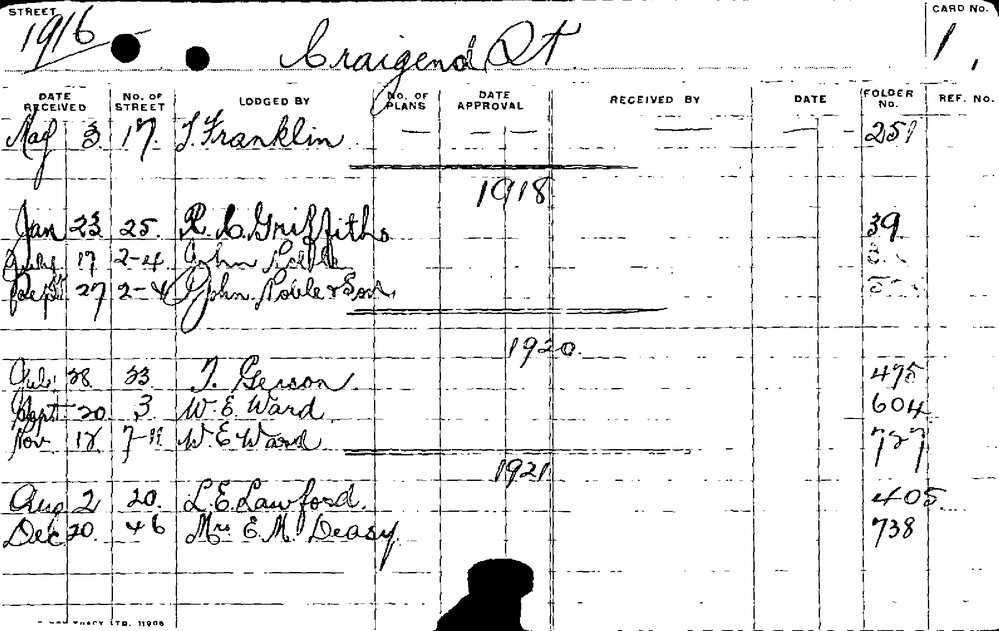 STREET CARD No.
1916 Craigend St. 1
DATE RECEIVED No. OF STREET LODGED BY No. OF PLANS DATE APPROVAL RECEIVED BY DATE FOLDER No. REF. No.
May 3 17. T. Franklin 251
1918
Jan 23 25. R. C. Griffiths 39
July 17 2-4 John Noble
Sept 27 2-4 John Noble & Son
1920.
July 28 23 T. Gerson. 475
Sept 20 3 W. E. Ward 604
Nov 12 7-11 W. E. Ward 727
1921
Aug 2 20. L. E. Lawford. 405.
Dec 20. 46 Mrs E. M. Deasy. 738
LTD. 11908